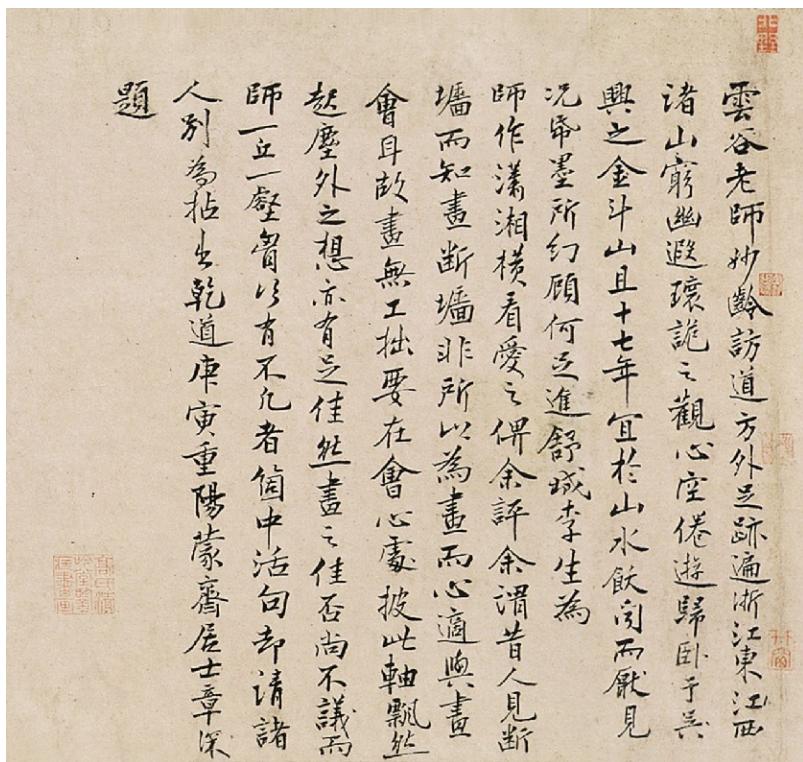 雲谷老師妙齡訪道方外足跡遍浙江東江西
諸山窮幽遐瓌詭之觀心空倦遊歸臥于吳
興之金斗山且十七年宜於山水飫聞而厭見
況帋墨所幻顧何足進舒城李生為
師作瀟湘橫看愛之俾余評余謂昔人見斷
墻而知畫斷墻非所以為畫而心適與畫
會耳故畫無工拙要在會心處披此軸飄然
起塵外之想亦有足佳然畫之佳否尚不議而
師一丘一壑胷次有不凡者箇中活句却請諸
人別為拈出乾道庚寅重陽蒙齋居士章深
題